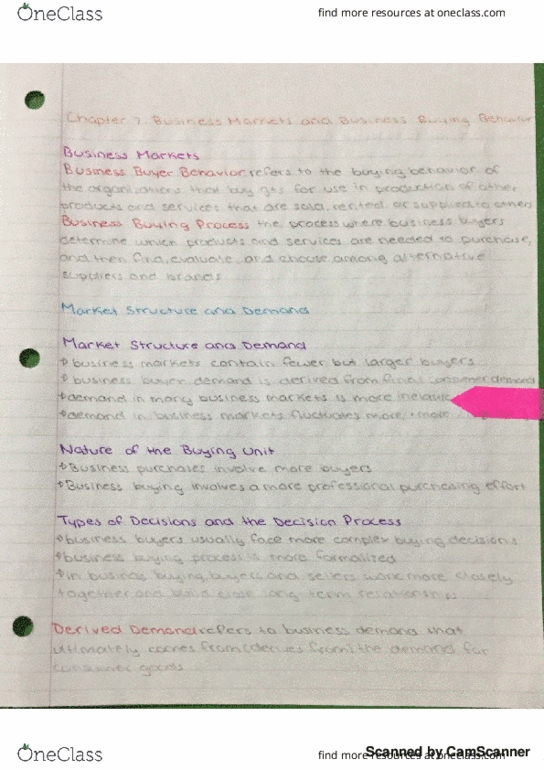 OneClass
find more resources at oneclass.com
Chapter 7 Business Markets and Business Buying Behavior
Business Markets
Business Buyer Behavior refers to the buying behavior of
the organizations that buy g&s for use in production of other
products and services that are sold, rented, or supplied to others
Business Buying Process the process where business buyers
determine which products and services are needed to purchase,
and then find, evaluate, and choose among alternative
suppliers and brands
Market Structure and Demand
Market Structure and Demand
business markets contain fewer but larger buyers
business buyer demand is derived from final consumer demand
demand in many business markets is more inelastic
demand in business markets fluctuates more, more
Nature of the Buying Unit
Business purchases involve more buyers
Business buying involves a more professional purchasing effort
Types of Decisions and the Decision Process
business buyers usually face more complex buying decisions
business buying process is more formalized
in business buying, buyers and sellers work more closely
together and build close long-term relationships
Derived Demand refers to business demand that
ultimately comes from (derives from) the demand for
consumer goods
OneClass
find more resources at oneclass.com
Scanned by CamScanner